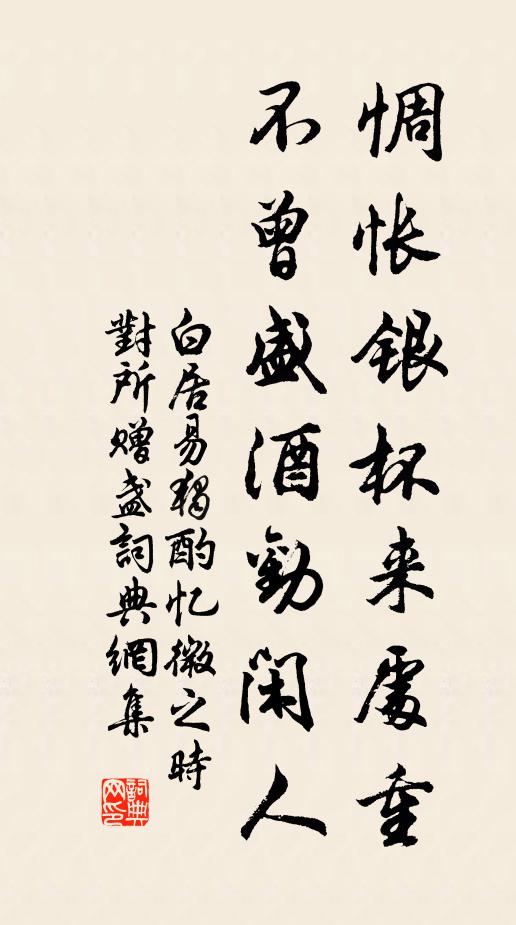 惆怅銀杯来處重
不曾盛酒勸閑人
白居易獨酌忆微之時
對所赠盏詞典網集
詞典网印